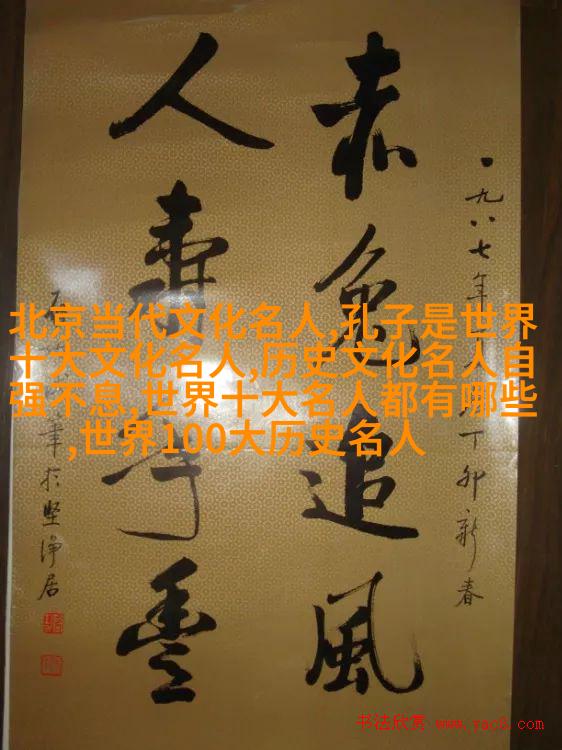 北京当代文化名人,孔子是世界
十大文化名人,历史文化名人自
强不息,世界十大名人都有哪些
,世界100大历史名人
一九八七年丁卯新春
赤兔追風
人寿年豐
筆於坚净居
书法欣赏 www.yac8.com